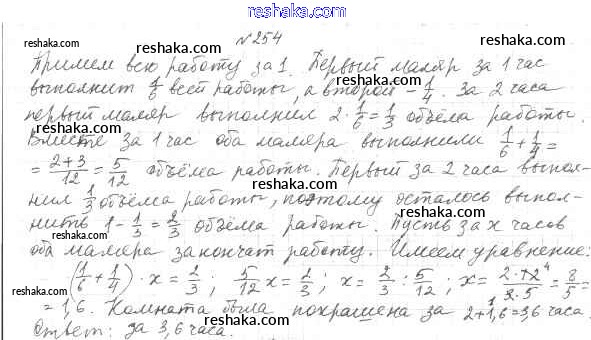 reshaka.com
reshaka.com reshaka.com
№254
reshaka.com
Примем всю работу за 1. Первый маляр за 1 час
выполнит 1/6 всей работы, а второй - 1/4. За 2 часа
первый маляр выполнил 2·1/6=1/3 объёма работы.
reshaka.com reshaka.com
Вместе за 1 час оба маляра выполнили 1/6+1/4=
= 2+3/12 = 5/12 объёма работы. Первый за 2 часа выпол-
reshaka.com
нил 1/3 объёма работы, поэтому осталось выпол-
reshaka.com
нить 1-1/3=2/3 объёма работы. Пусть за x часов
reshaka.com
оба маляра закончат работу. Имеем уравнение:
(1/6+1/4)·x=2/3; 5/12x=2/3; x=2/3:5/12; x=2·12/3·5=8/5=
reshaka.com reshaka.com
=1,6. Комната была покрашена за 2+1,6=3,6 часа.
reshaka.com reshaka.com
Ответ: за 3,6 часа.
reshaka.com